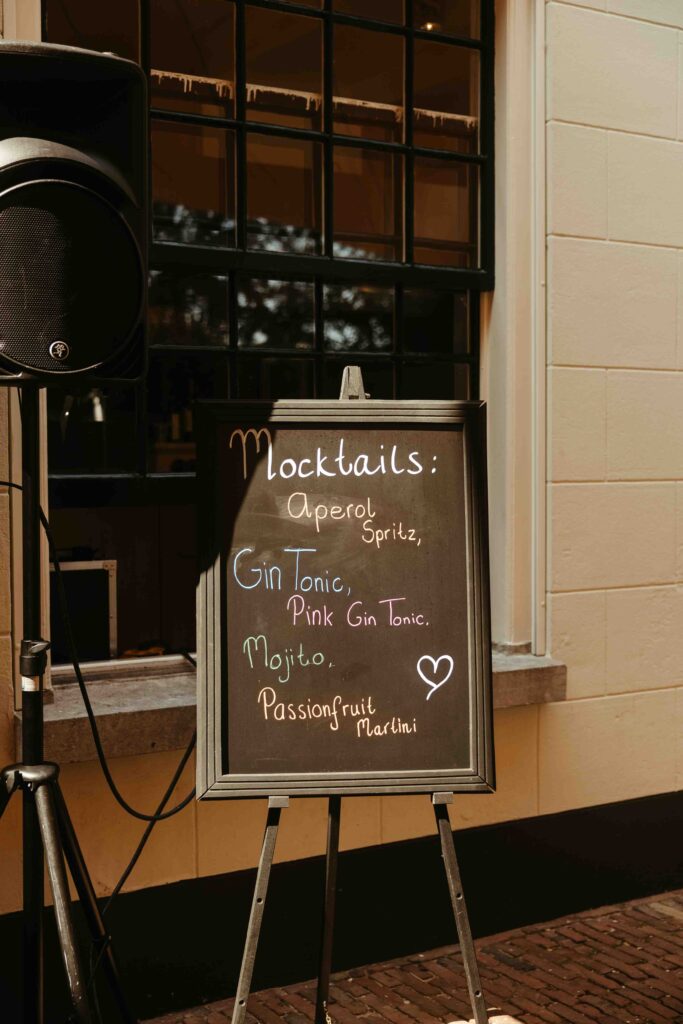 Mocktails:
Aperol
Spritz,
Gin Tonic,
Pink Gin Tonic.
Mojito,
Passionfruit
Martini